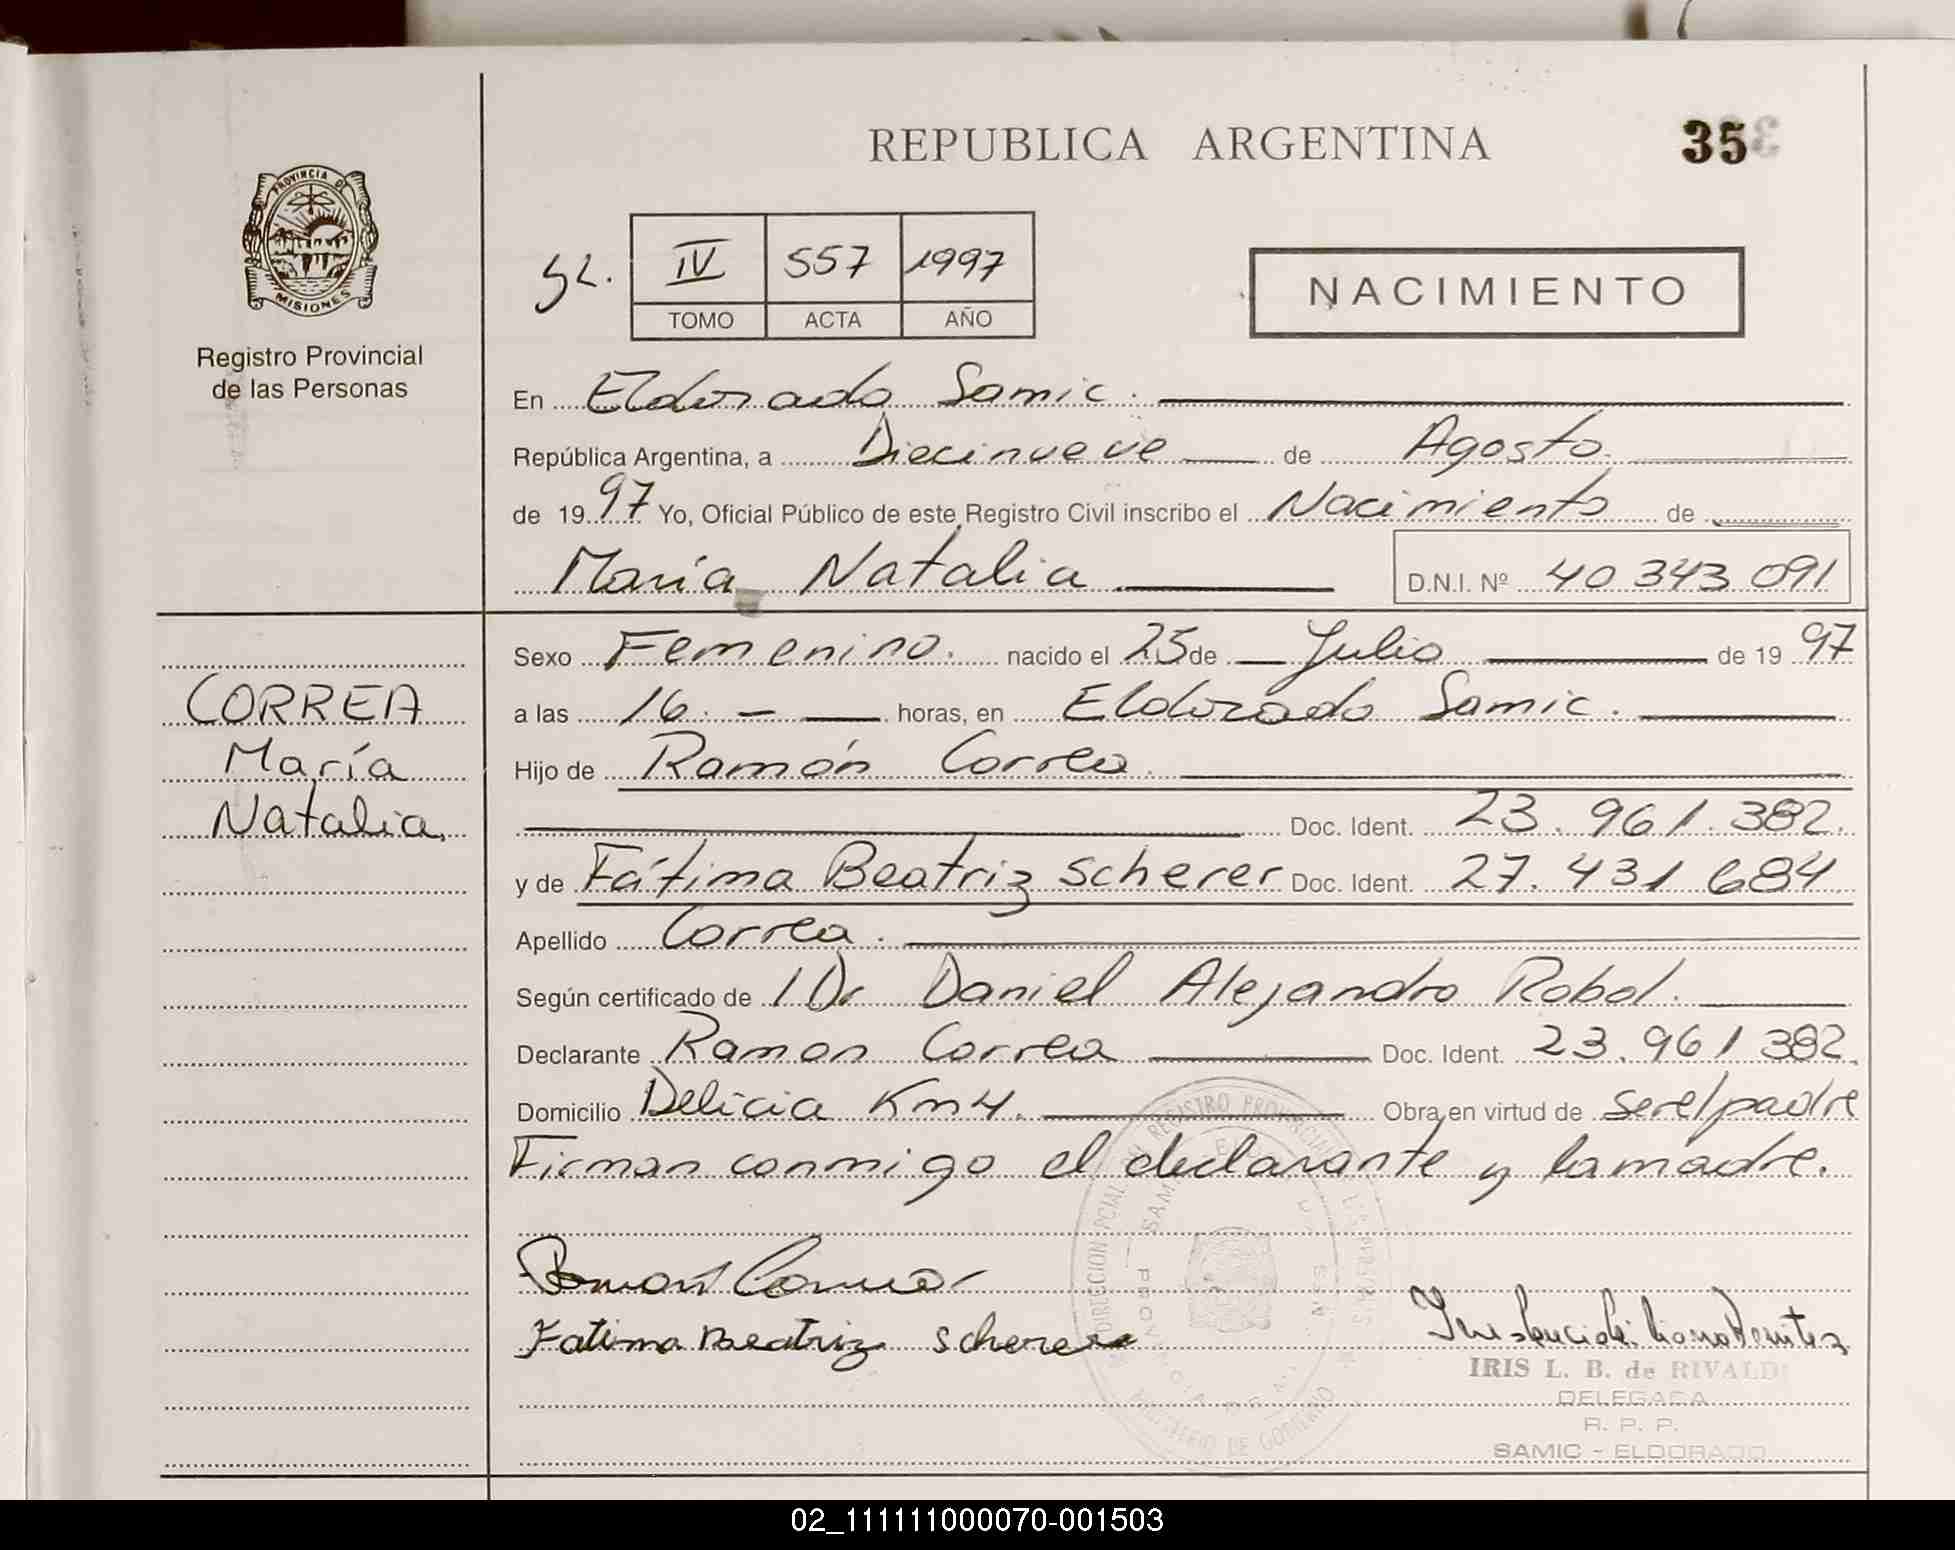 REPUBLICA ARGENTINA
35
PROVINCIA DE
MISIONES
Registro Provincial
de las Personas
IV 557 1997
TOMO ACTA AÑO
NACIMIENTO
En Eldorado Samic.
República Argentina, a Diecinueve de Agosto.
de 1997 Yo, Oficial Público de este Registro Civil inscribo el Nacimiento de
María Natalia D.N.I. Nº 40 343 091
CORREA
María
Natalia.
Sexo Femenino. nacido el 25 de Julio de 1997
a las 16. - horas, en Eldorado Samic.
Hijo de Ramón Correa.
Doc. Ident. 23.961.382.
y de Fátima Beatriz Scherer Doc. Ident. 27.431 684
Apellido Correa.
Según certificado de 1 Dr Daniel Alejandro Robol.
Declarante Ramon Correa Doc. Ident. 23.961 382.
Domicilio Delicia Km 4. Obra en virtud de ser el padre
Firman conmigo el declarante y la madre.
Ramon Correa
Fatima Beatriz Scherer
IRIS L. B. de RIVALDI
DELEGADA
R. P. P.
SAMIC - ELDORADO
02_111111000070-001503